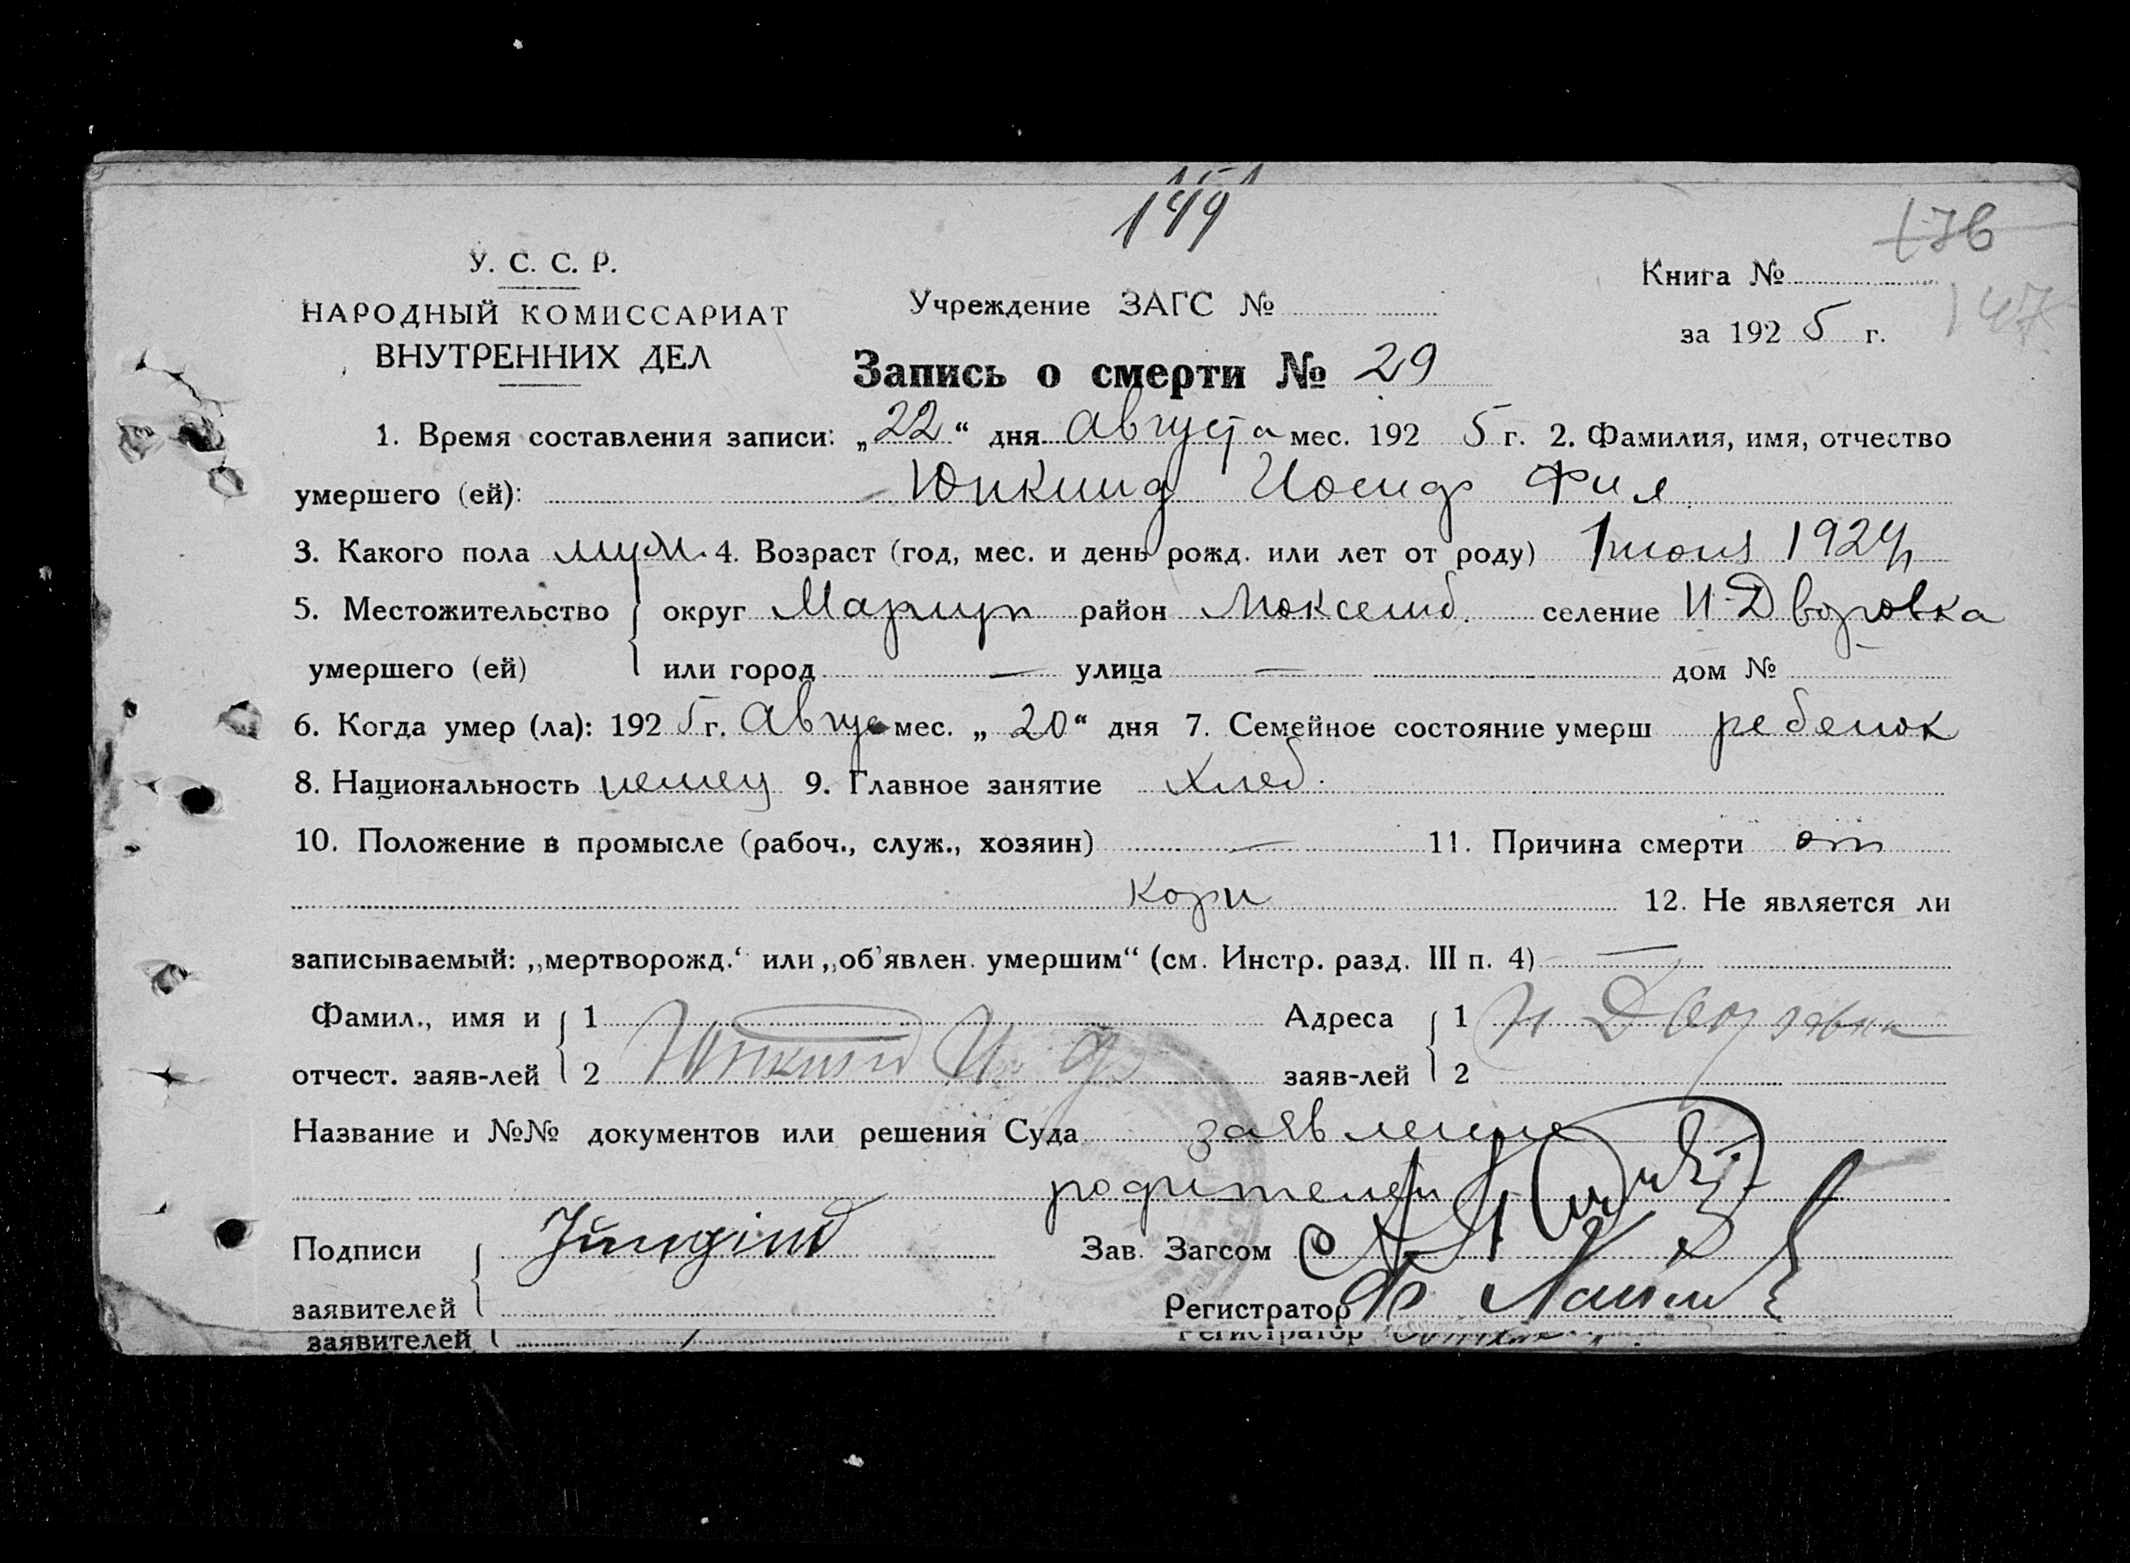 149
176
У. С. С. Р.
НАРОДНЫЙ КОМИССАРИАТ
ВНУТРЕННИХ ДЕЛ
Учреждение ЗАГС №
Книга №
147
за 192 5 г.
Запись о смерти № 29
1. Время составления записи: „22“ дня Августа мес. 192 5 г. 2. Фамилия, имя, отчество
умершего (ей): Юнкинд Иосиф Фил
3. Какого пола муж. 4. Возраст (год, мес. и день рожд. или лет от роду) 1 июля 1924
5. Местожительство округ Мариуп район Люксемб. селение Н-Дворовка
умершего (ей) или город — улица — дом №
6. Когда умер (ла): 192 5 г. Авгус мес. „20“ дня 7. Семейное состояние умерш ребенок
8. Национальность немец 9. Главное занятие хлеб.
10. Положение в промысле (рабоч., служ., хозяин) — 11. Причина смерти от
кори 12. Не является ли
записываемый: „мертворожд.‘ или „об’явлен. умершим“ (см. Инстр. разд. III п. 4) —
Фамил., имя и 1 Адреса 1 Н Дворовка
отчест. заяв-лей 2 Юнкинд И Ф заяв-лей 2
Название и №№ документов или решения Суда заявление
родителей
Подписи Jungind Зав. Загсом
заявителей Регистратор
заявителей Регистратор